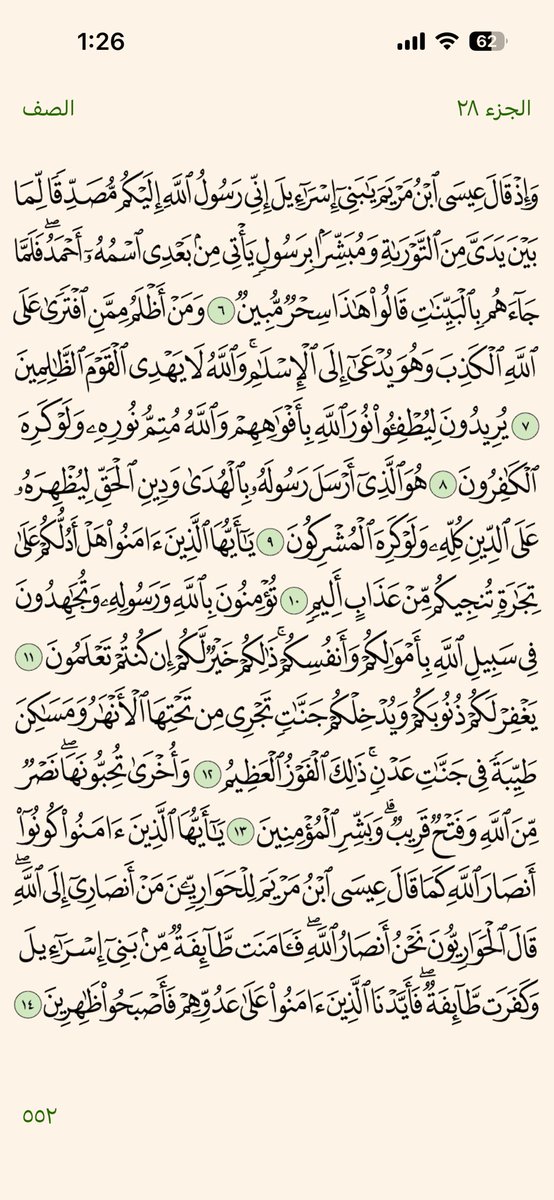 1:26
62
الجزء ٢٨
الصف
وَإِذْ قَالَ عِيسَى ٱبْنُ مَرْيَمَ يَـٰبَنِىٓ إِسْرَٰٓءِيلَ إِنِّى رَسُولُ ٱللَّهِ إِلَيْكُم مُّصَدِّقًا لِّمَا
بَيْنَ يَدَىَّ مِنَ ٱلتَّوْرَىٰةِ وَمُبَشِّرًۢا بِرَسُولٍ يَأْتِى مِنۢ بَعْدِى ٱسْمُهُۥٓ أَحْمَدُ ۖ فَلَمَّا
جَآءَهُم بِٱلْبَيِّنَـٰتِ قَالُوا۟ هَـٰذَا سِحْرٌ مُّبِينٌ ٦ وَمَنْ أَظْلَمُ مِمَّنِ ٱفْتَرَىٰ عَلَى
ٱللَّهِ ٱلْكَذِبَ وَهُوَ يُدْعَىٰٓ إِلَى ٱلْإِسْلَـٰمِ ۚ وَٱللَّهُ لَا يَهْدِى ٱلْقَوْمَ ٱلظَّـٰلِمِينَ
٧ يُرِيدُونَ لِيُطْفِـُٔوا۟ نُورَ ٱللَّهِ بِأَفْوَٰهِهِمْ وَٱللَّهُ مُتِمُّ نُورِهِۦ وَلَوْ كَرِهَ
ٱلْكَـٰفِرُونَ ٨ هُوَ ٱلَّذِىٓ أَرْسَلَ رَسُولَهُۥ بِٱلْهُدَىٰ وَدِينِ ٱلْحَقِّ لِيُظْهِرَهُۥ
عَلَى ٱلدِّينِ كُلِّهِۦ وَلَوْ كَرِهَ ٱلْمُشْرِكُونَ ٩ يَـٰٓأَيُّهَا ٱلَّذِينَ ءَامَنُوا۟ هَلْ أَدُلُّكُمْ عَلَىٰ
تِجَـٰرَةٍ تُنجِيكُم مِّنْ عَذَابٍ أَلِيمٍ ١٠ تُؤْمِنُونَ بِٱللَّهِ وَرَسُولِهِۦ وَتُجَـٰهِدُونَ
فِى سَبِيلِ ٱللَّهِ بِأَمْوَٰلِكُمْ وَأَنفُسِكُمْ ۚ ذَٰلِكُمْ خَيْرٌ لَّكُمْ إِن كُنتُمْ تَعْلَمُونَ ١١
يَغْفِرْ لَكُمْ ذُنُوبَكُمْ وَيُدْخِلْكُمْ جَنَّـٰتٍ تَجْرِى مِن تَحْتِهَا ٱلْأَنْهَـٰرُ وَمَسَـٰكِنَ
طَيِّبَةً فِى جَنَّـٰتِ عَدْنٍ ۚ ذَٰلِكَ ٱلْفَوْزُ ٱلْعَظِيمُ ١٢ وَأُخْرَىٰ تُحِبُّونَهَا ۖ نَصْرٌ
مِّنَ ٱللَّهِ وَفَتْحٌ قَرِيبٌ ۗ وَبَشِّرِ ٱلْمُؤْمِنِينَ ١٣ يَـٰٓأَيُّهَا ٱلَّذِينَ ءَامَنُوا۟ كُونُوٓا۟
أَنصَارَ ٱللَّهِ كَمَا قَالَ عِيسَى ٱبْنُ مَرْيَمَ لِلْحَوَارِيِّـۧنَ مَنْ أَنصَارِىٓ إِلَى ٱللَّهِ ۖ
قَالَ ٱلْحَوَارِيُّونَ نَحْنُ أَنصَارُ ٱللَّهِ ۖ فَـَٔامَنَت طَّآئِفَةٌ مِّنۢ بَنِىٓ إِسْرَٰٓءِيلَ
وَكَفَرَت طَّآئِفَةٌ ۖ فَأَيَّدْنَا ٱلَّذِينَ ءَامَنُوا۟ عَلَىٰ عَدُوِّهِمْ فَأَصْبَحُوا۟ ظَـٰهِرِينَ ١٤
٥٥٢